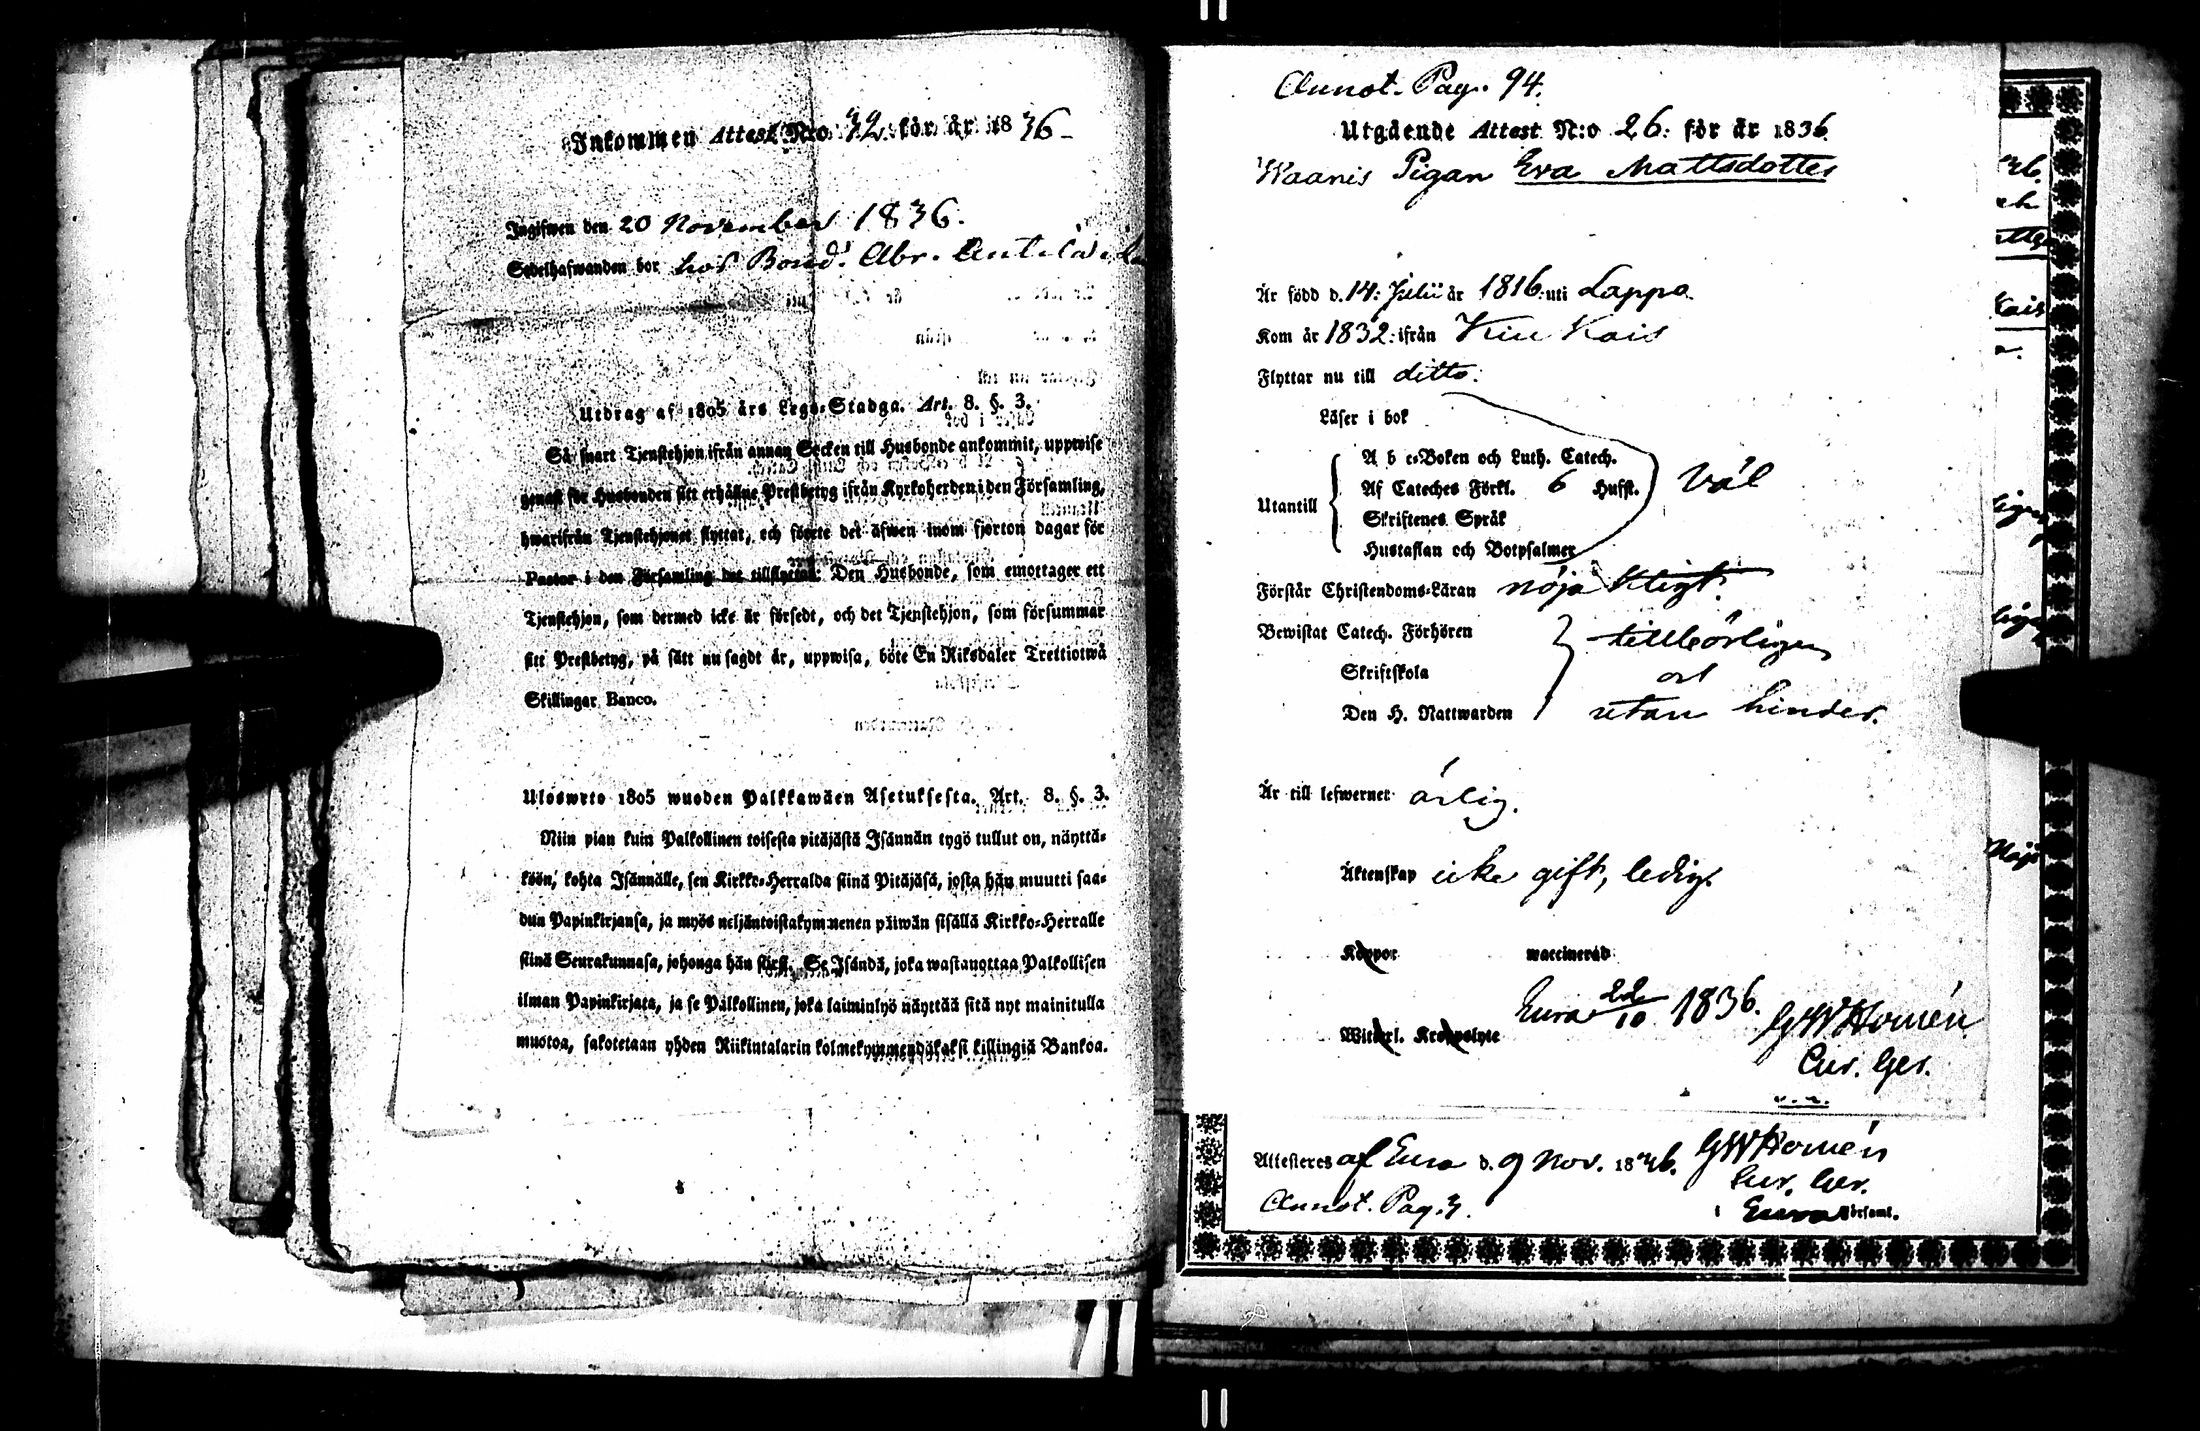 Inkommen Attest N:o 32 för år 1836
Ingifwen den 20 November 1836.
Sedelhafwanden bor hos Bond. Abr. Antila i
Utdrag af 1805 års Lego-Stadga. Art. 8. §. 3.
Så snart Tjenstehjon ifrån annan Socken till Husbonde ankommit, uppwise
genast för Husbonden sitt erhållne Prestbetyg ifrån Kyrkoherden i den Församling,
hwarifrån Tjenstehjonet flyttat, och förete det äfwen inom fjorton dagar för
Pastor i den Församling det tillflyttat: Den Husbonde, som emottager ett
Tjenstehjon, som dermed icke är försedt, och det Tjenstehjon, som försummar
sitt Prestbetyg, på sätt nu sagdt är, uppwisa, böte En Riksdaler Trettiotwå
Skillingar Banco.
Ulosweto 1805 wuoden Palkkawäen Asetuksesta. Art. 8. §. 3.
Niin pian kuin Palkollinen toisesta pitäjästä Isännän tygö tullut on, näyttä-
köön, kohta Isännälle, sen Kirkko-Herralda siinä Pitäjäsä, josta hän muutti saa-
dun Papinkirjansa, ja myös neljäntoistakymmenen päiwän sisällä Kirkko-Herralle
siinä Seurakunnasa, johonga hän siirsi. Se Isändä, joka wastanottaa Palkollisen
ilman Papinkirjata, ja se Palkollinen, joka laiminlyö näyttää sitä nyt mainitulla
muotoa, sakotetaan yhden Riikintalarin kolmekymmendäkaksi killingiä Bankoa.
Annot. Pag. 94.
Utgående Attest N:o 26: för år 1836
Waanis Pigan Eva Mattsdotter
Är född d. 14: Julii år 1816: uti Lappo
Kom år 1832: ifrån Kiukais
Flyttar nu till ditto:
Läser i bok
Utantill
A b c-Boken och Luth. Catech.
Af Cateches Förkl. 6 Hufst.
Skriftenes Språk
Hustaflan och Botpsalmer
Väl
Förstår Christendoms-Läran nöjaktligt.
Bewistat Catech. Förhören
Skriftskola
Den H. Nattwarden
tillbörligen
och
utan hinder.
Är till lefwernet ärlig.
Äktenskap icke gift, ledig.
Koppor waccinerad
Witterl. Kroppslyte
Eura 22/10 1836. GW Homén
Cur. Ger.
Attesteres af Eura d. 9 Nov. 1836. GW Homén
Cur. Ger.
Annot. Pag. 3.
i Eura Församl.